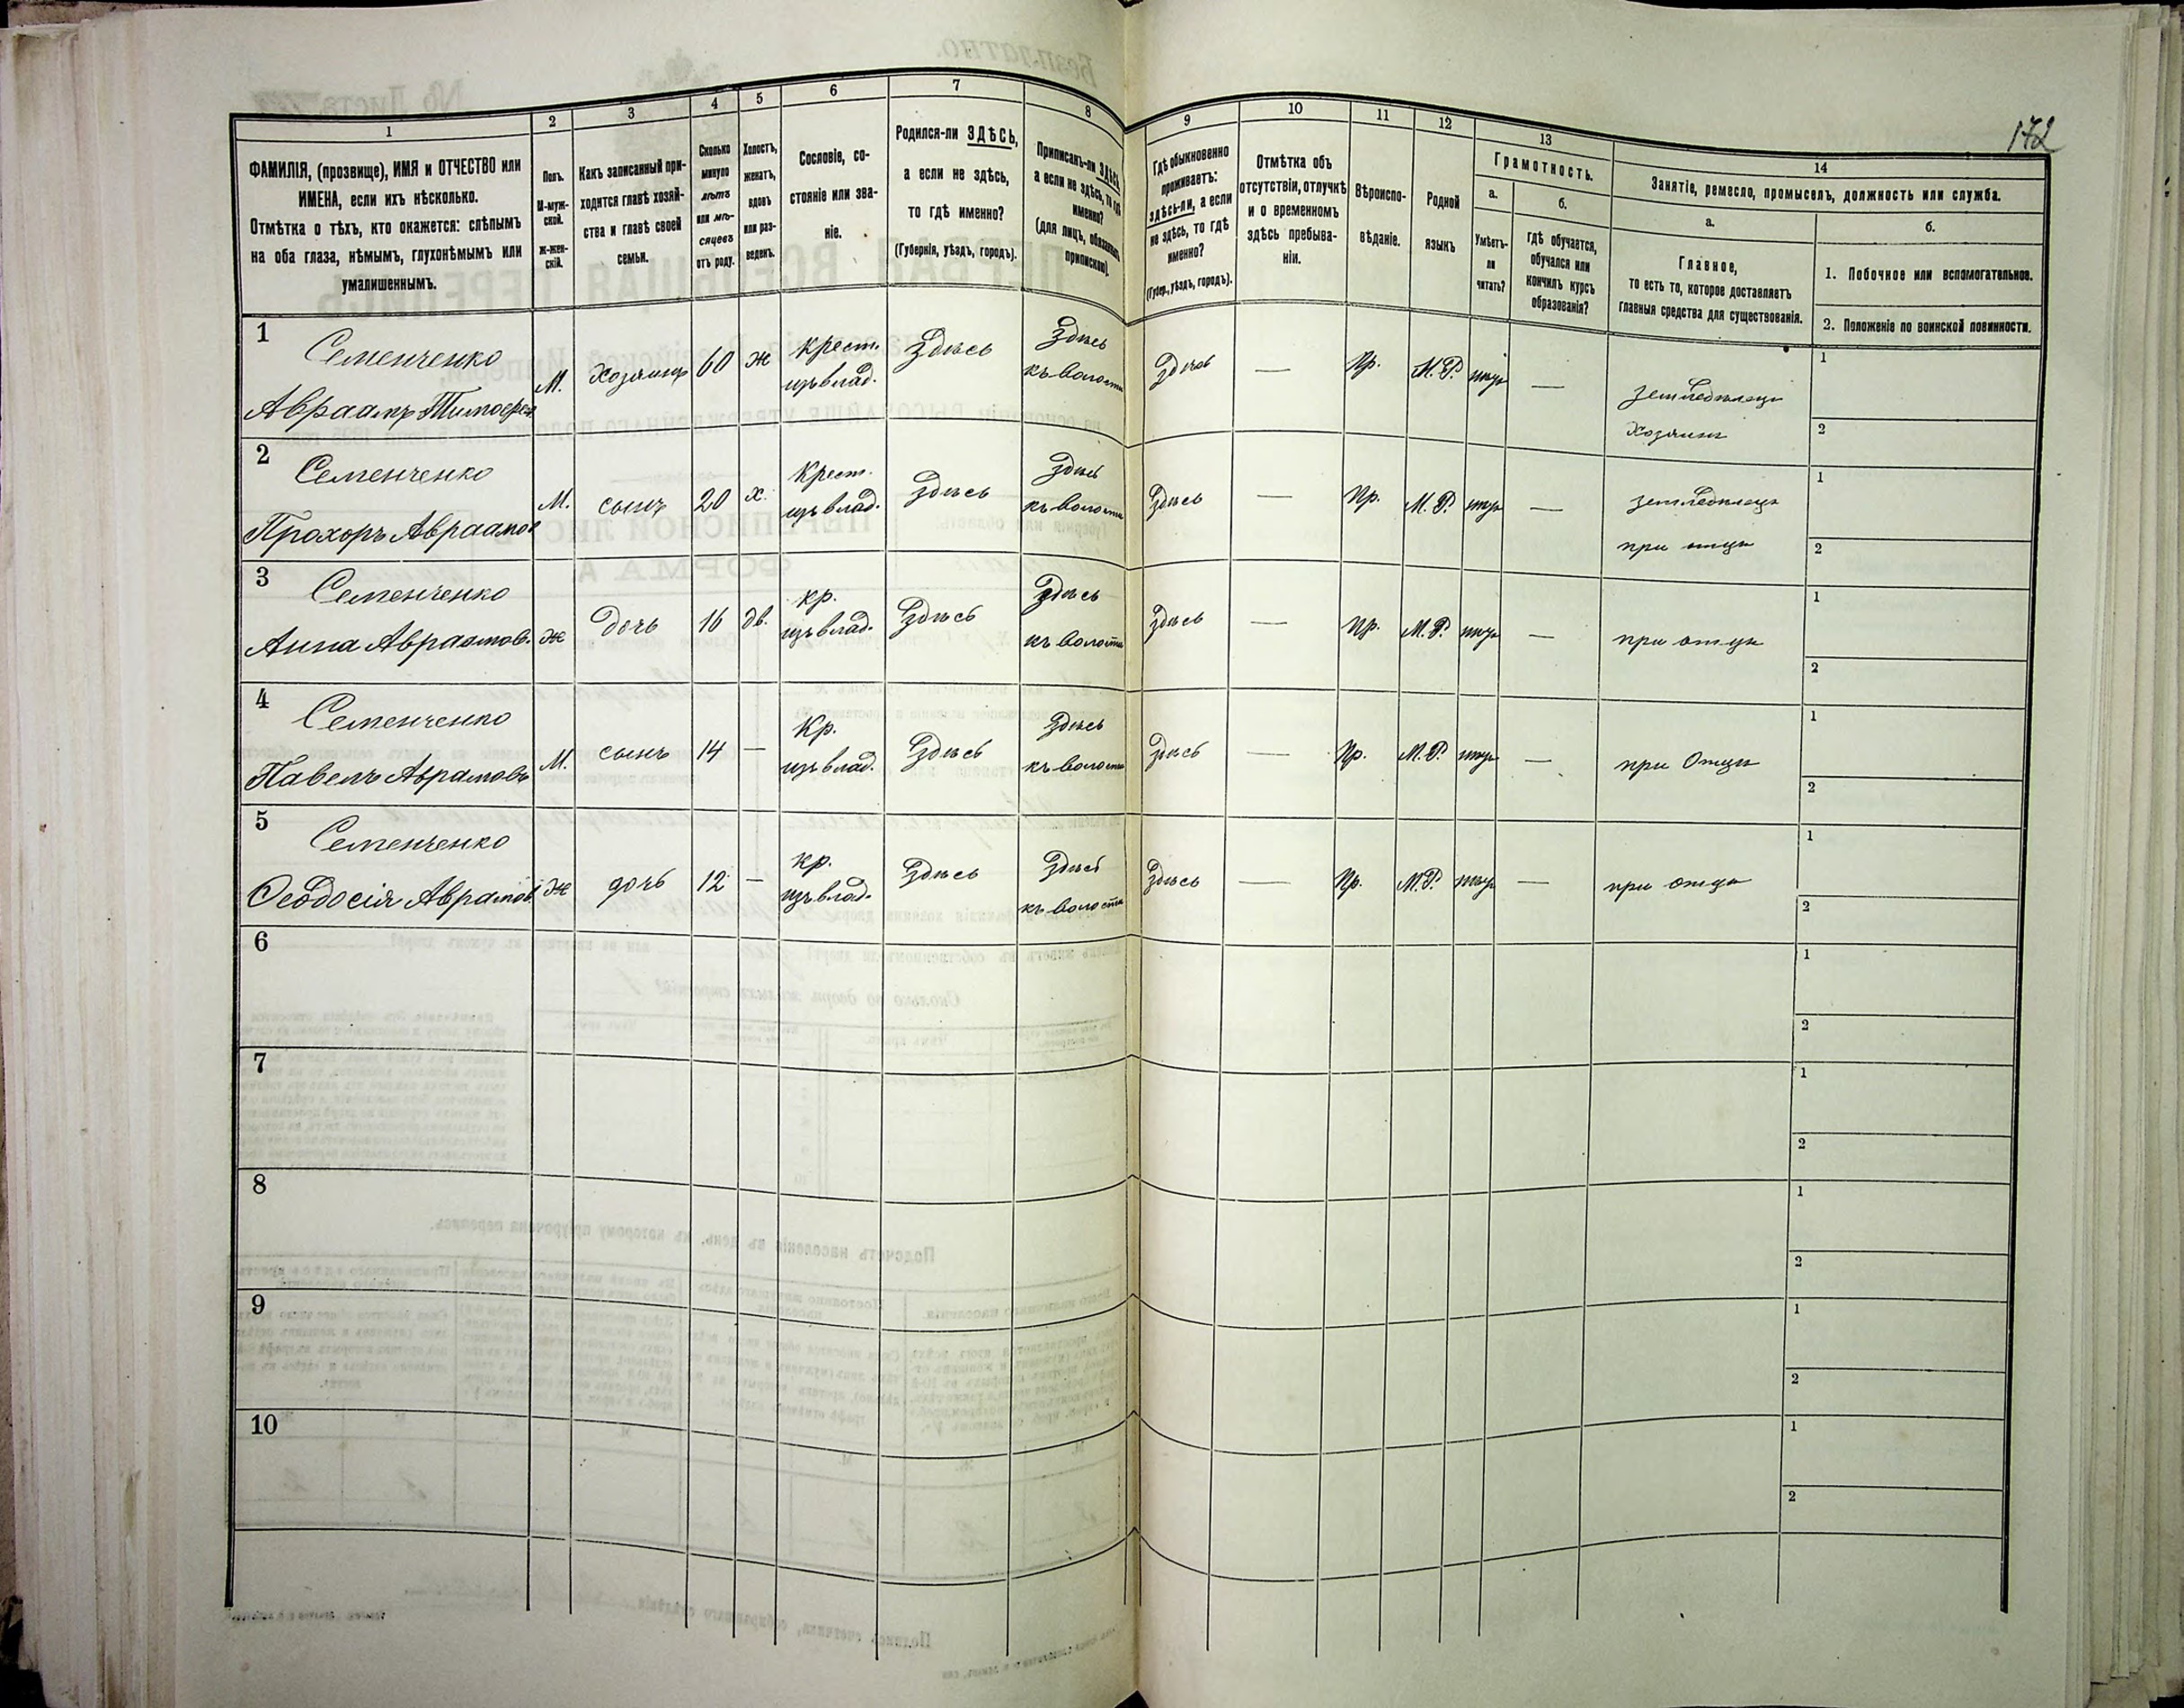 172
1 2 3 4 5 6 7 8 9 10 11 12 13 14
ФАМИЛІЯ, (прозвище), ИМЯ и ОТЧЕСТВО или
ИМЕНА, если ихъ нѣсколько.
Отмѣтка о тѣхъ, кто окажется: слѣпымъ
на оба глаза, нѣмымъ, глухонѣмымъ или
умалишеннымъ.
Полъ.
М-муж-
ской.
ж-жен-
скій.
Какъ записанный при-
ходится главѣ хозяй-
ства и главѣ своей
семьи.
Сколько
минуло
лѣтъ
или мѣ-
сяцевъ
отъ роду.
Холостъ,
женатъ,
вдовъ
или раз-
веденъ.
Сословіе, со-
стояніе или зва-
ніе.
Родился-ли ЗДѢСЬ,
а если не здѣсь,
то гдѣ именно?
(Губернія, уѣздъ, городъ).
Приписанъ-ли ЗДѢСЬ,
а если не здѣсь, то гдѣ
именно?
(для лицъ, обязанныхъ
припискою).
Гдѣ обыкновенно
проживаетъ:
здѣсь-ли, а если
не здѣсь, то гдѣ
именно?
(Губер., уѣздъ, городъ).
Отмѣтка объ
отсутствіи, отлучкѣ
и о временномъ
здѣсь пребыва-
ніи.
Вѣроиспо-
вѣданіе.
Родной
языкъ
Грамотность.
а.
Умѣетъ-
ли
читать?
б.
гдѣ обучается,
обучался или
кончилъ курсъ
образованія?
Занятіе, ремесло, промыселъ, должность или служба.
а.
Главное,
то есть то, которое доставляетъ
главныя средства для существованія.
б.
1. Побочное или вспомогательное.
2. Положеніе по воинской повинности.
1 Семенченко крест. Здѣсь Здѣсь 1
Авраамъ Тимофеев М. Хозяинъ 60 ж изъ влад. къ волости Здѣсь — Пр. М.Р. нѣтъ — земледѣлецъ
Хозяинъ 2
2 Семенченко Крест. здѣсь 1
Прохоръ Авраамов М. сынъ 20 х. изъ влад. здѣсь къ волости Здѣсь — Пр. М.Р. нѣтъ — земледѣлецъ
при отцѣ 2
3 Семенченко кр. Здѣсь 1
Анна Авраамов. ж дочь 16 дв. изъ влад. Здѣсь къ волости Здѣсь — Пр. М.Р. нѣтъ — при отцѣ
2
4 Семенченко Кр. Здѣсь 1
Павелъ Аврамовъ М. сынъ 14 — изъ влад. Здѣсь къ волости Здѣсь — Пр. М.Р. нѣтъ — при Отцѣ
2
5 Семенченко кр. Здѣсь 1
Ѳеодосія Аврамов ж дочь 12 — изъ влад. Здѣсь къ волости Здѣсь — Пр. М.Р. нѣтъ — при отцѣ
2
6 1
2
7 1
2
8 1
2
9 1
2
10 1
2